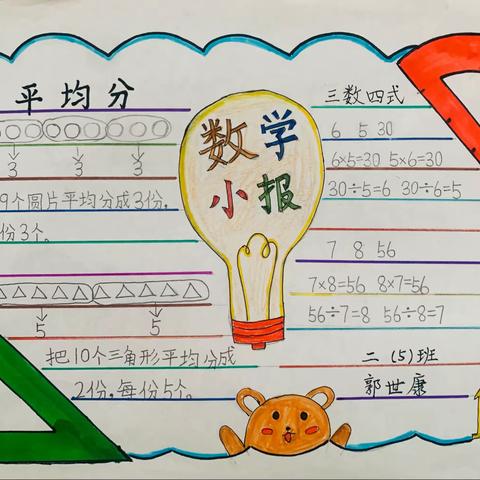 平均分
3 3 3
9个圆片平均分成3份,
份3个。
5 5
把10个三角形平均分成
2份,每份5个。
数学
小报
三数四式
6 5 30
6×5=30 5×6=30
30÷5=6 30÷6=5
7 8 56
7×8=56 8×7=56
56÷7=8 56÷8=7
二(5)班
郭世康